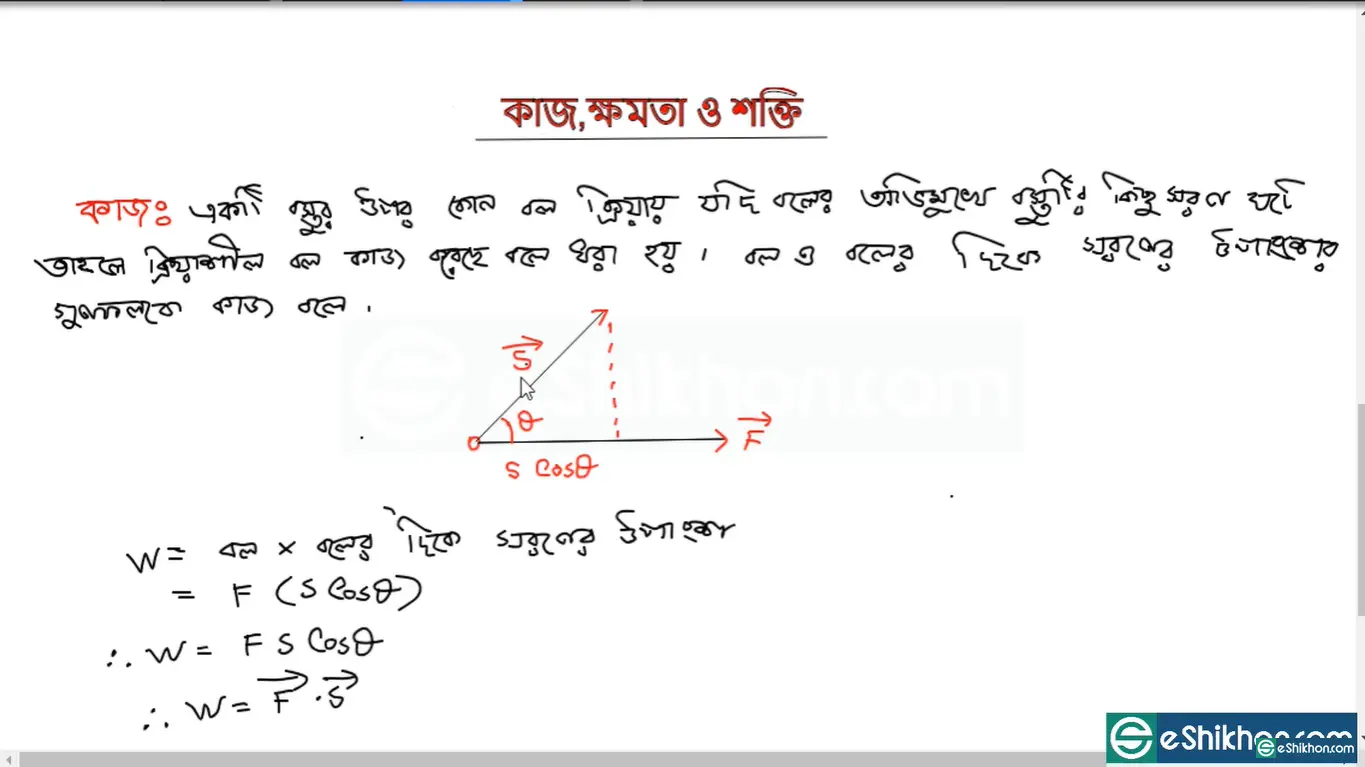 কাজ,ক্ষমতা ও শক্তি
কাজঃ একটি বস্তুর উপর কোন বল ক্রিয়ায় যদি বলের অভিমুখে বস্তুটির কিছু সরণ ঘটে
তাহলে ক্রিয়াশীল বল কাজ করেছে বলে ধরা হয়। বল ও বলের দিকে সরণের উপাংশের
গুণফলকে কাজ বলে।
eShikhon.com
S
θ
F
S Cosθ
W = বল × বলের দিকে সরণের উপাংশ
= F (S Cosθ)
∴ W = F S Cosθ
∴ W = F . S
eShikhon.com
eShikhon.com